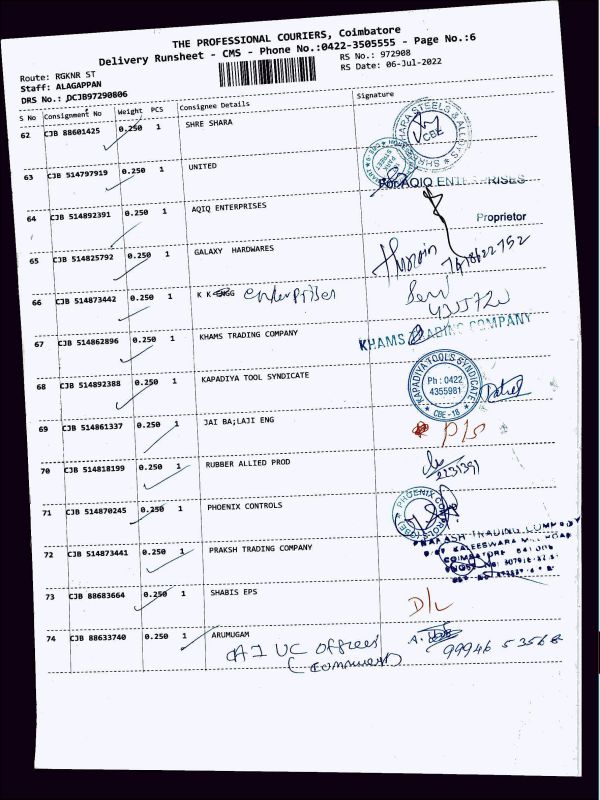 THE PROFESSIONAL COURIERS, Coimbatore
Delivery Runsheet - CMS - Phone No.:0422-3505555 - Page No.:6
Route: RGKNR ST
RS No.: 972908
Staff: ALAGAPPAN
RS Date: 06-Jul-2022
DRS No.: DCJB97290806
S No Consignment No Weight PCS Consignee Details Signature
62 CJB 88601425 0.250 1 SHRE SHARA
STEELS & ALLOYS
CBE
63 CJB 514797919 0.250 1 UNITED
For AQIQ ENTERPRISES
64 CJB 514892391 0.250 1 AQIQ ENTERPRISES
Proprietor
65 CJB 514825792 0.250 1 GALAXY HARDWARES
66 CJB 514873442 0.250 1 K K enterprises
67 CJB 514862896 0.250 1 KHAMS TRADING COMPANY
KHAMS TRADING COMPANY
68 CJB 514892388 0.250 1 KAPADIYA TOOL SYNDICATE
KAPADIYA TOOLS SYNDICATE
Ph : 0422
4355981
CBE - 18
69 CJB 514861337 0.250 1 JAI BA;LAJI ENG
P/S
70 CJB 514818199 0.250 1 RUBBER ALLIED PROD
71 CJB 514870245 0.250 1 PHOENIX CONTROLS
PHOENIX CONTROLS
PRAKASH TRADING COMPANY
72 CJB 514873441 0.250 1 PRAKSH TRADING COMPANY
KALEESWARA MILL ROAD
COIMBATORE
73 CJB 88683664 0.250 1 SHABIS EPS
D/L
74 CJB 88633740 0.250 1 ARUMUGAM
99946 53568